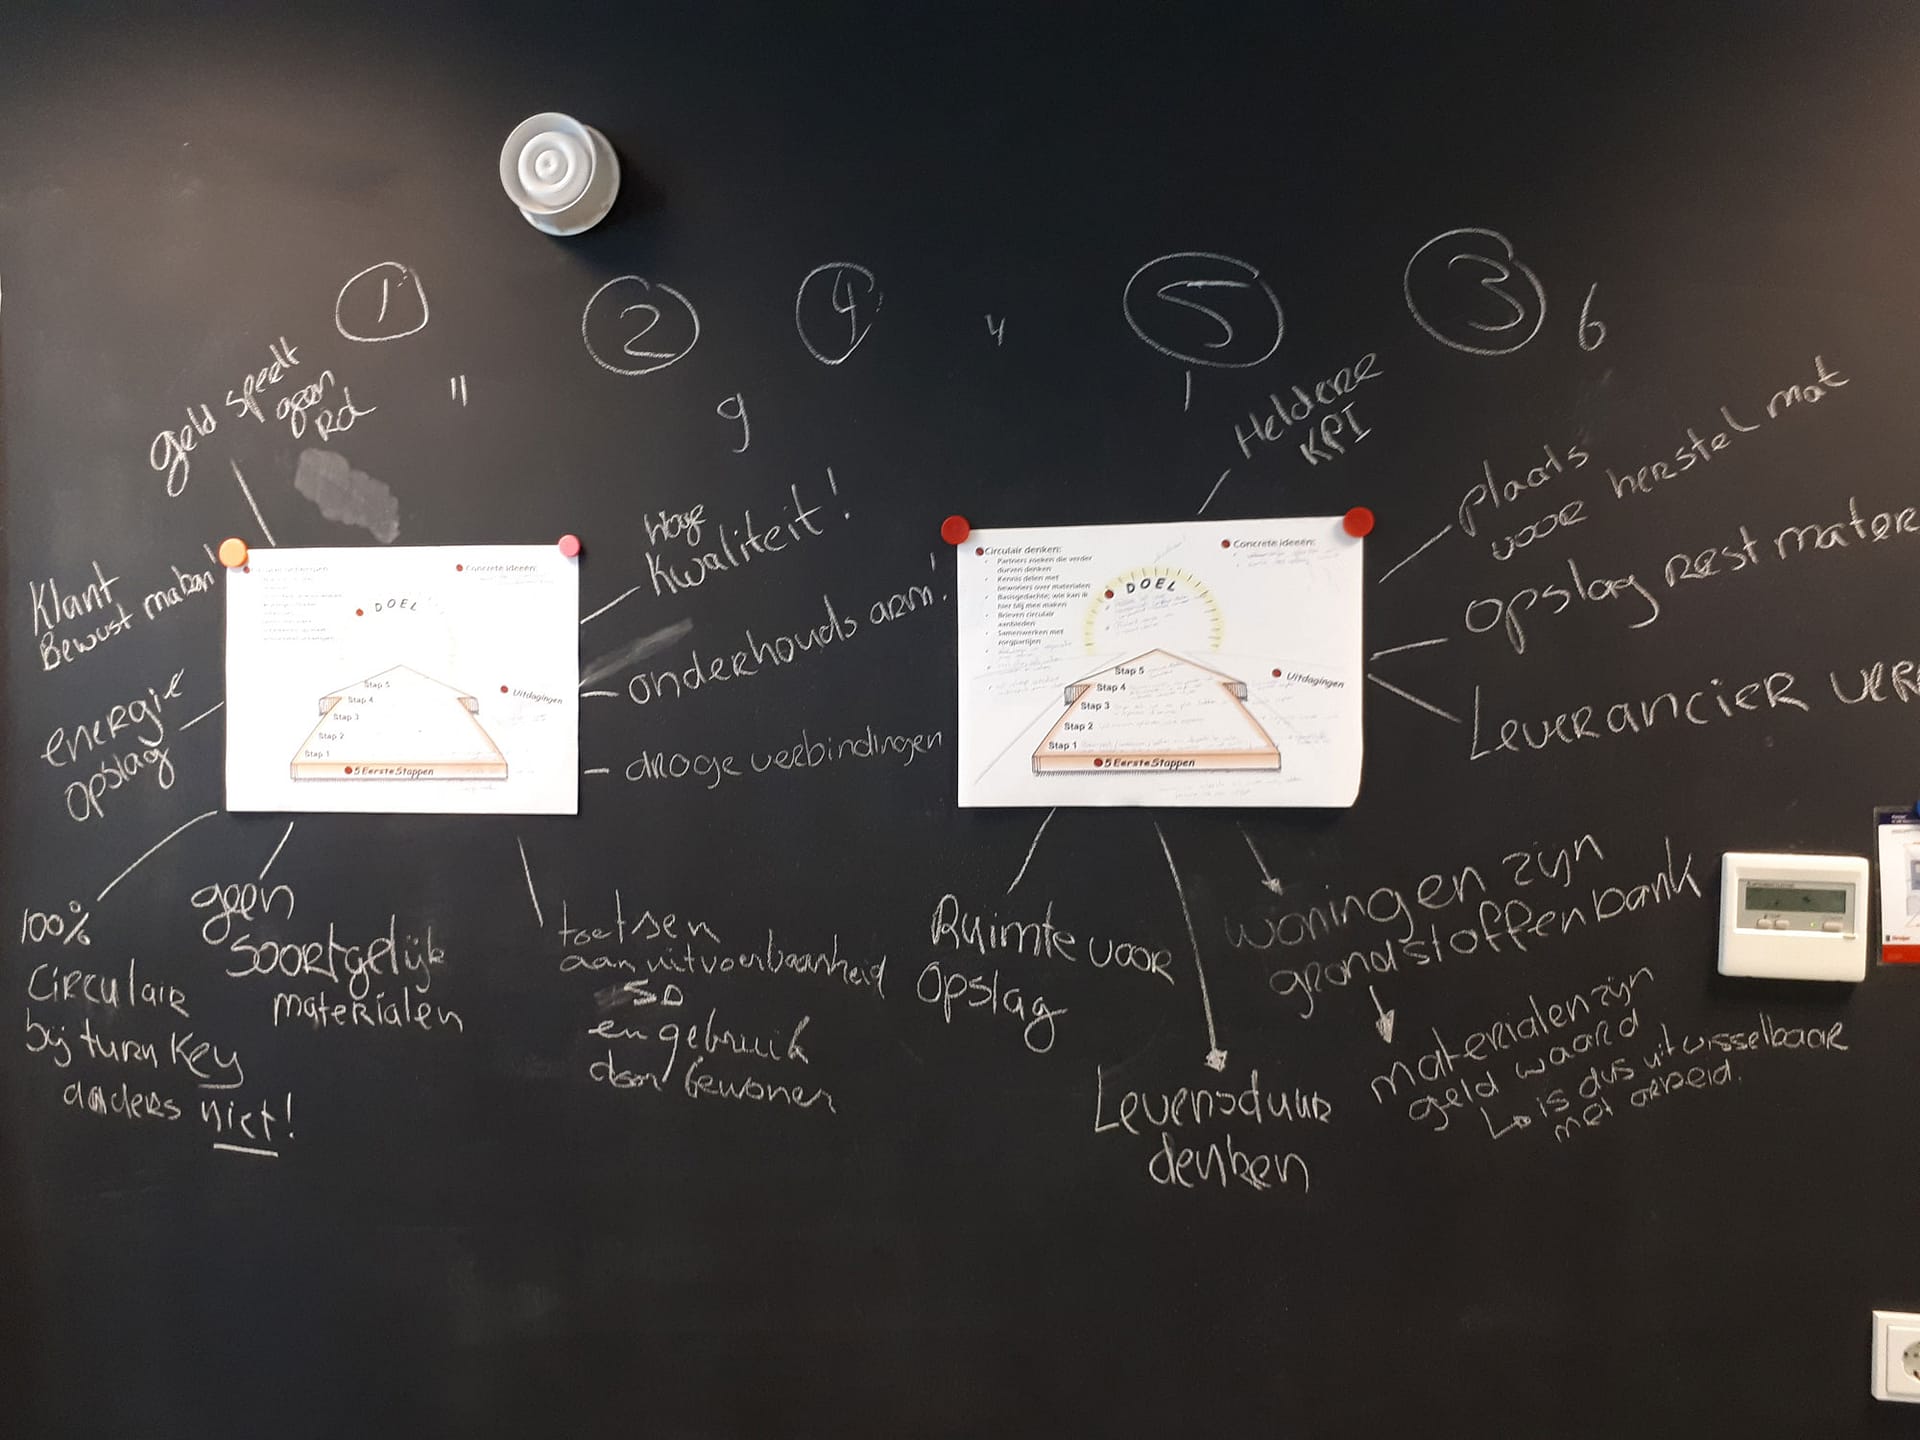 1
2
4
4
5
3
6
11
9
1
geld speelt
geen
Rol
Klant
Bewust maken
energie
opslag
100%
Circulair
bij turn Key
anders niet!
geen
soortgelijk
materialen
toetsen
aan uitvoerbaarheid
SD
en gebruik
door bewoner
Hoge
Kwaliteit!
onderhouds arm!
droge verbindingen
Concrete ideeën:
DOEL
Uitdagingen
Stap 5
Stap 4
Stap 3
Stap 2
Stap 1
5 Eerste Stappen
Heldere
KPI
plaats
voor herstel mat
opslag rest mater
Leverancier ver
Circulair denken:
Partners zoeken die verder
durven denken
Kennis delen met
bewoners over materialen
Basisgedachte: wie kan ik
hier blij mee maken
Brieven circulair
aanbieden
Samenwerken met
zorgpartijen
Concrete ideeën:
DOEL
Uitdagingen
Stap 5
Stap 4
Stap 3
Stap 2
Stap 1
5 Eerste Stappen
Ruimte voor
opslag
Levensduur
denken
woningen zijn
grondstoffenbank
materialen zijn
geld waard
is dus uitwisselbaar
met arbeid.